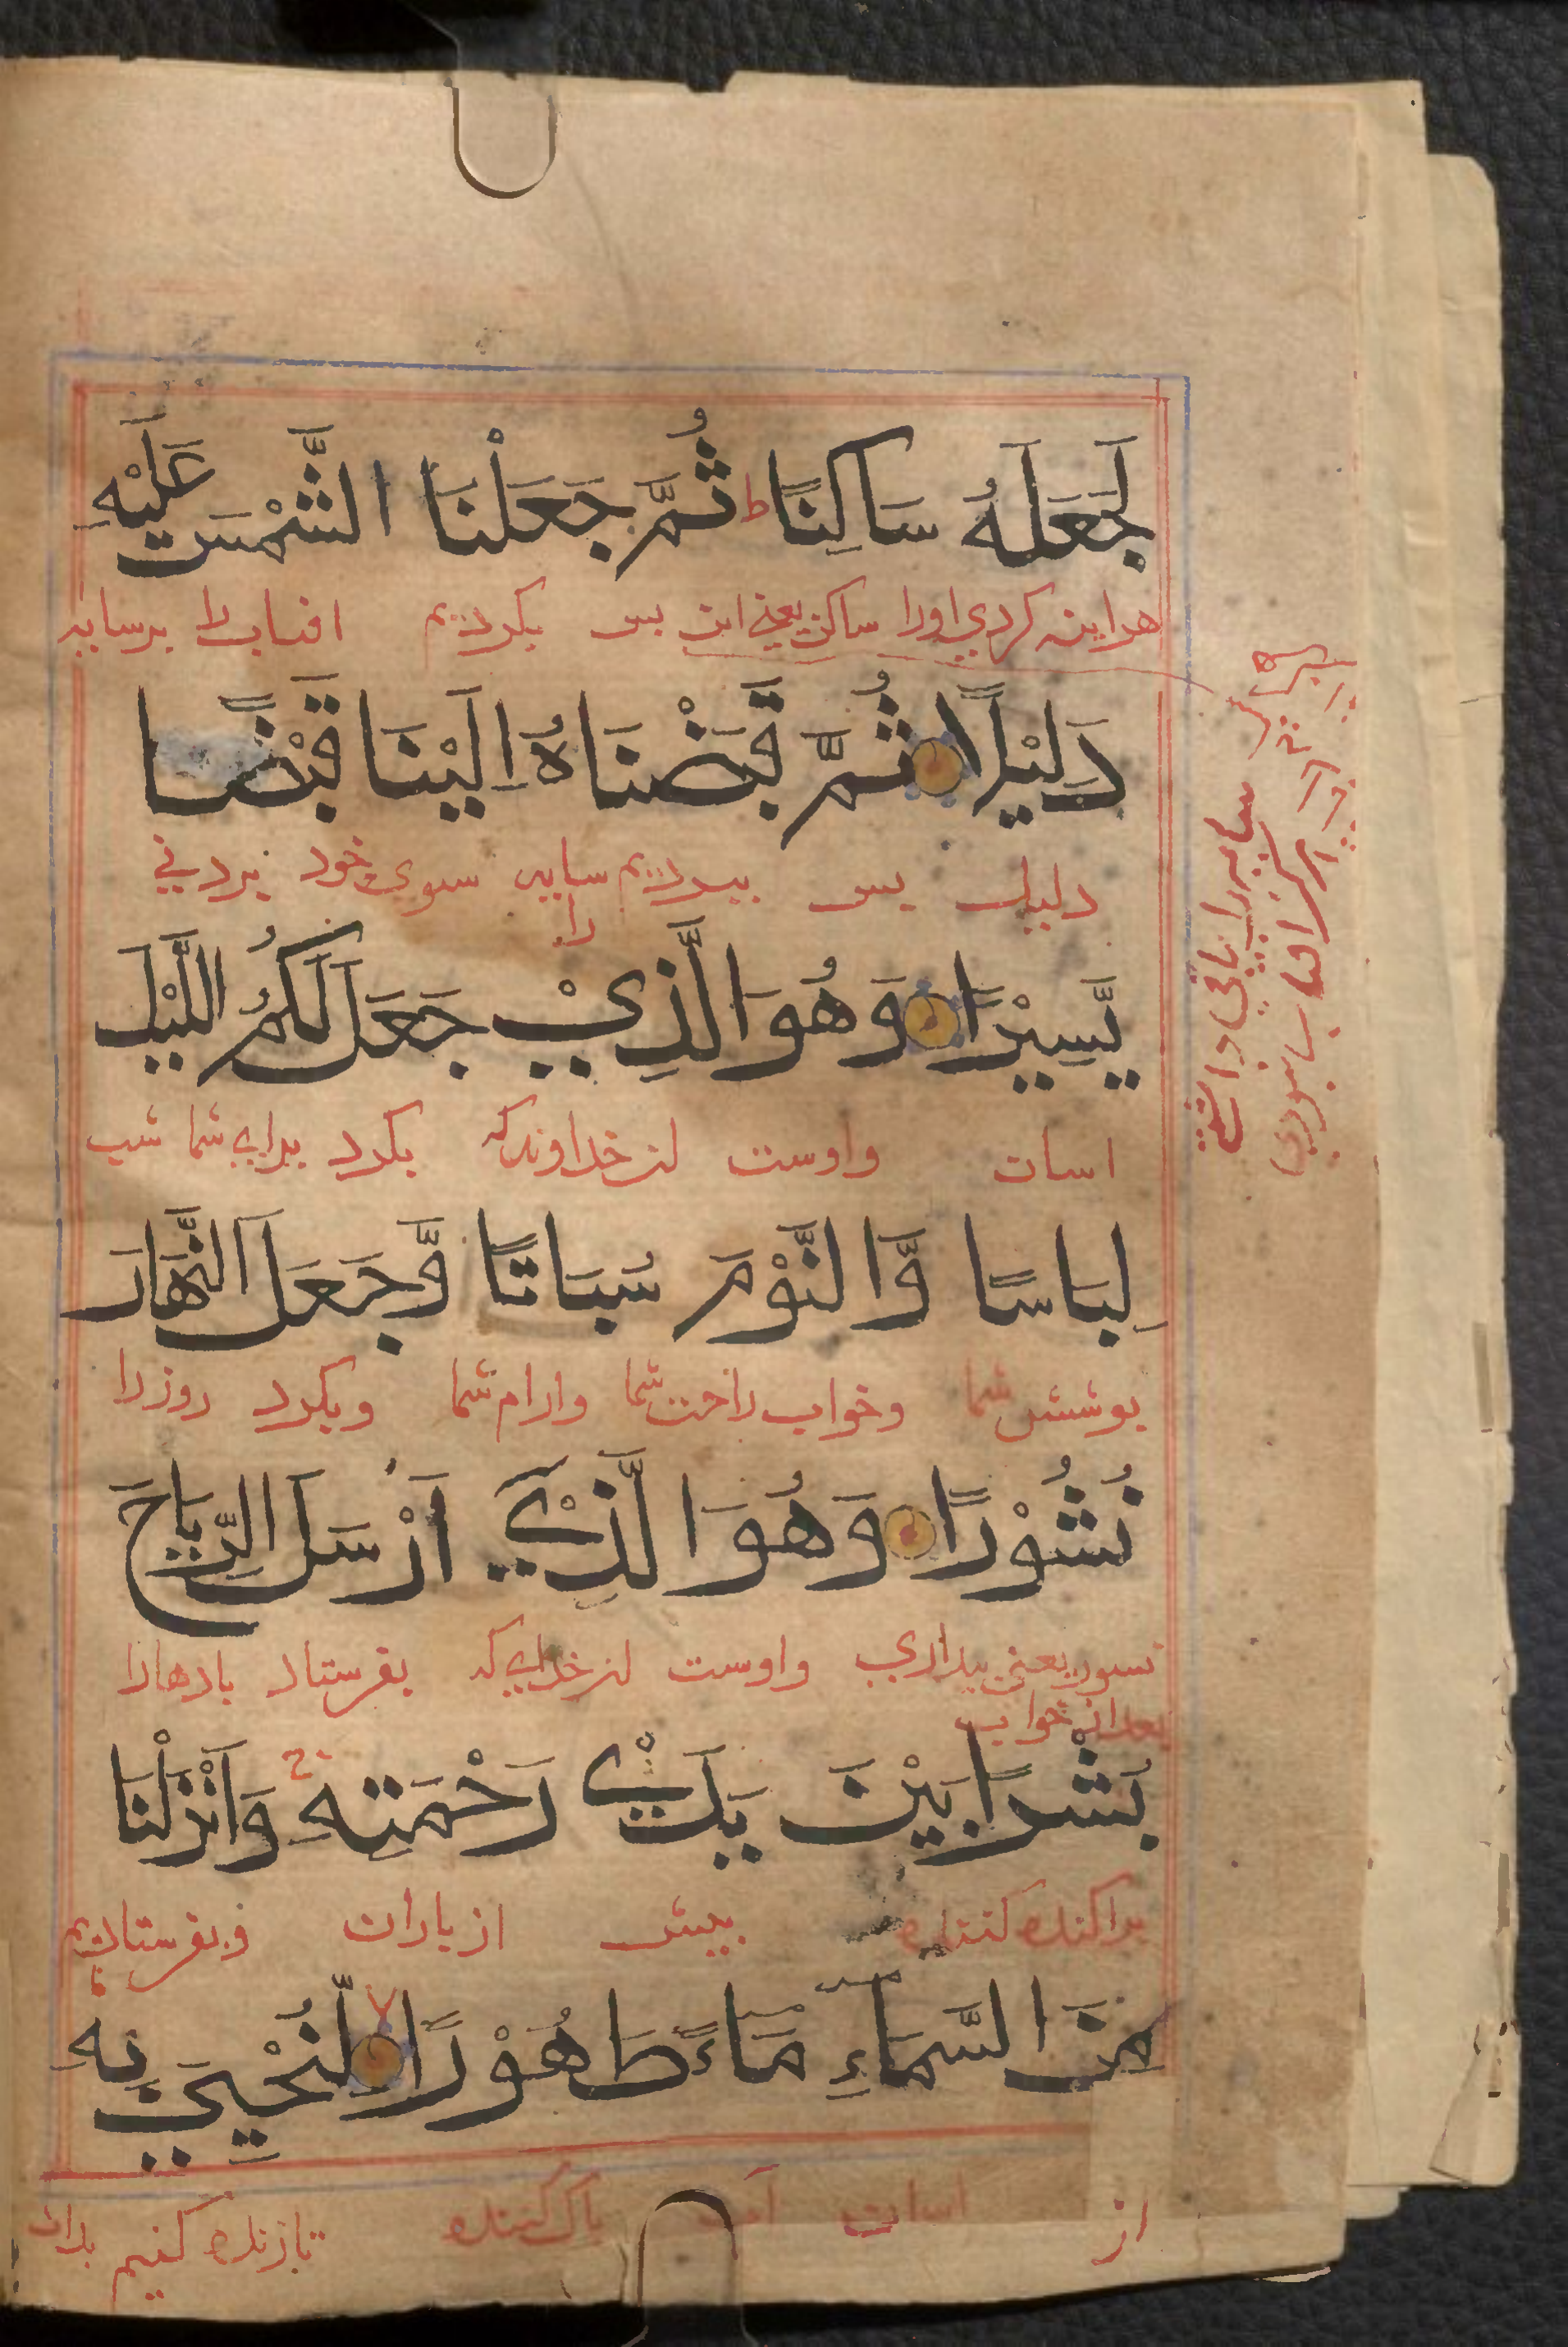 لَجَعَلَهُ سَاكِنًا ط ثُمَّ جَعَلْنَا الشَّمْسَ عَلَيْهِ
هراینه کردی اورا ساکن یعنی ان بس بکردیم افتاب را برسایه
دَلِيْلًا ثُمَّ قَبَضْنَاهُ اِلَيْنَا قَبْضًا
دلیل بس ببردیم سایه را سوی خود بردنی
يَّسِيْرًا وَهُوَ الَّذِيْ جَعَلَ لَكُمُ اللَّيْلَ
اسان واوست ان خداوندکه بکرد برای شما شب
لِبَاسًا وَّالنَّوْمَ سُبَاتًا وَّجَعَلَ النَّهَارَ
بوشش شما وخواب راحت شما وارام شما وبکرد روزرا
نُشُوْرًا وَهُوَ الَّذِيْ اَرْسَلَ الرِّيَاحَ
نسور یعنی بیداری واوست ان خدای که بفرستاد بادهارا
بعد از خواب
بَشْرًا بَيْنَ يَدَيْ رَحْمَتِهِ ج وَاَنْزَلْنَا
براکنده کننده بیش از باران وبفرستادیم
مِنَ السَّمَآءِ مَآءً طَهُوْرًا لا لِّنُحْيِيَ بِهِ
از اسمان آب باک کننده تازنده کنیم بدان
سایه را باقی داشتی